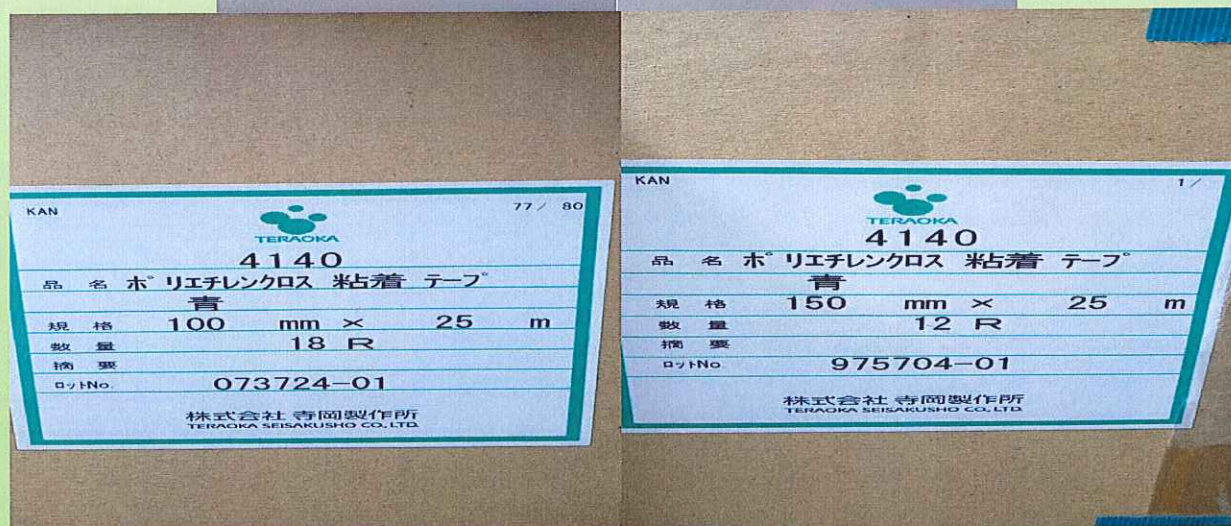 KAN 77/ 80
TERAOKA
4140
品 名 ポリエチレンクロス 粘着 テープ
青
規 格 100 mm × 25 m
数 量 18 R
摘 要
ロットNo. 073724-01
株式会社 寺岡製作所
TERAOKA SEISAKUSHO CO., LTD.
KAN 1/
TERAOKA
4140
品 名 ポリエチレンクロス 粘着 テープ
青
規 格 150 mm × 25 m
数 量 12 R
摘 要
ロットNo. 975704-01
株式会社 寺岡製作所
TERAOKA SEISAKUSHO CO., LTD.